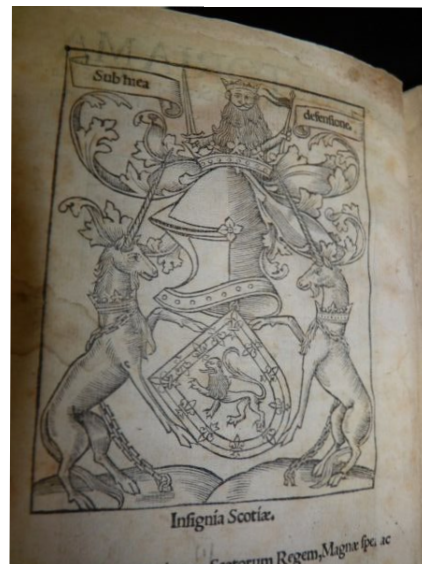 Sub mea
defensione.
Insignia Scotiæ.
Scotorum Regem, Magnæ spe, ac